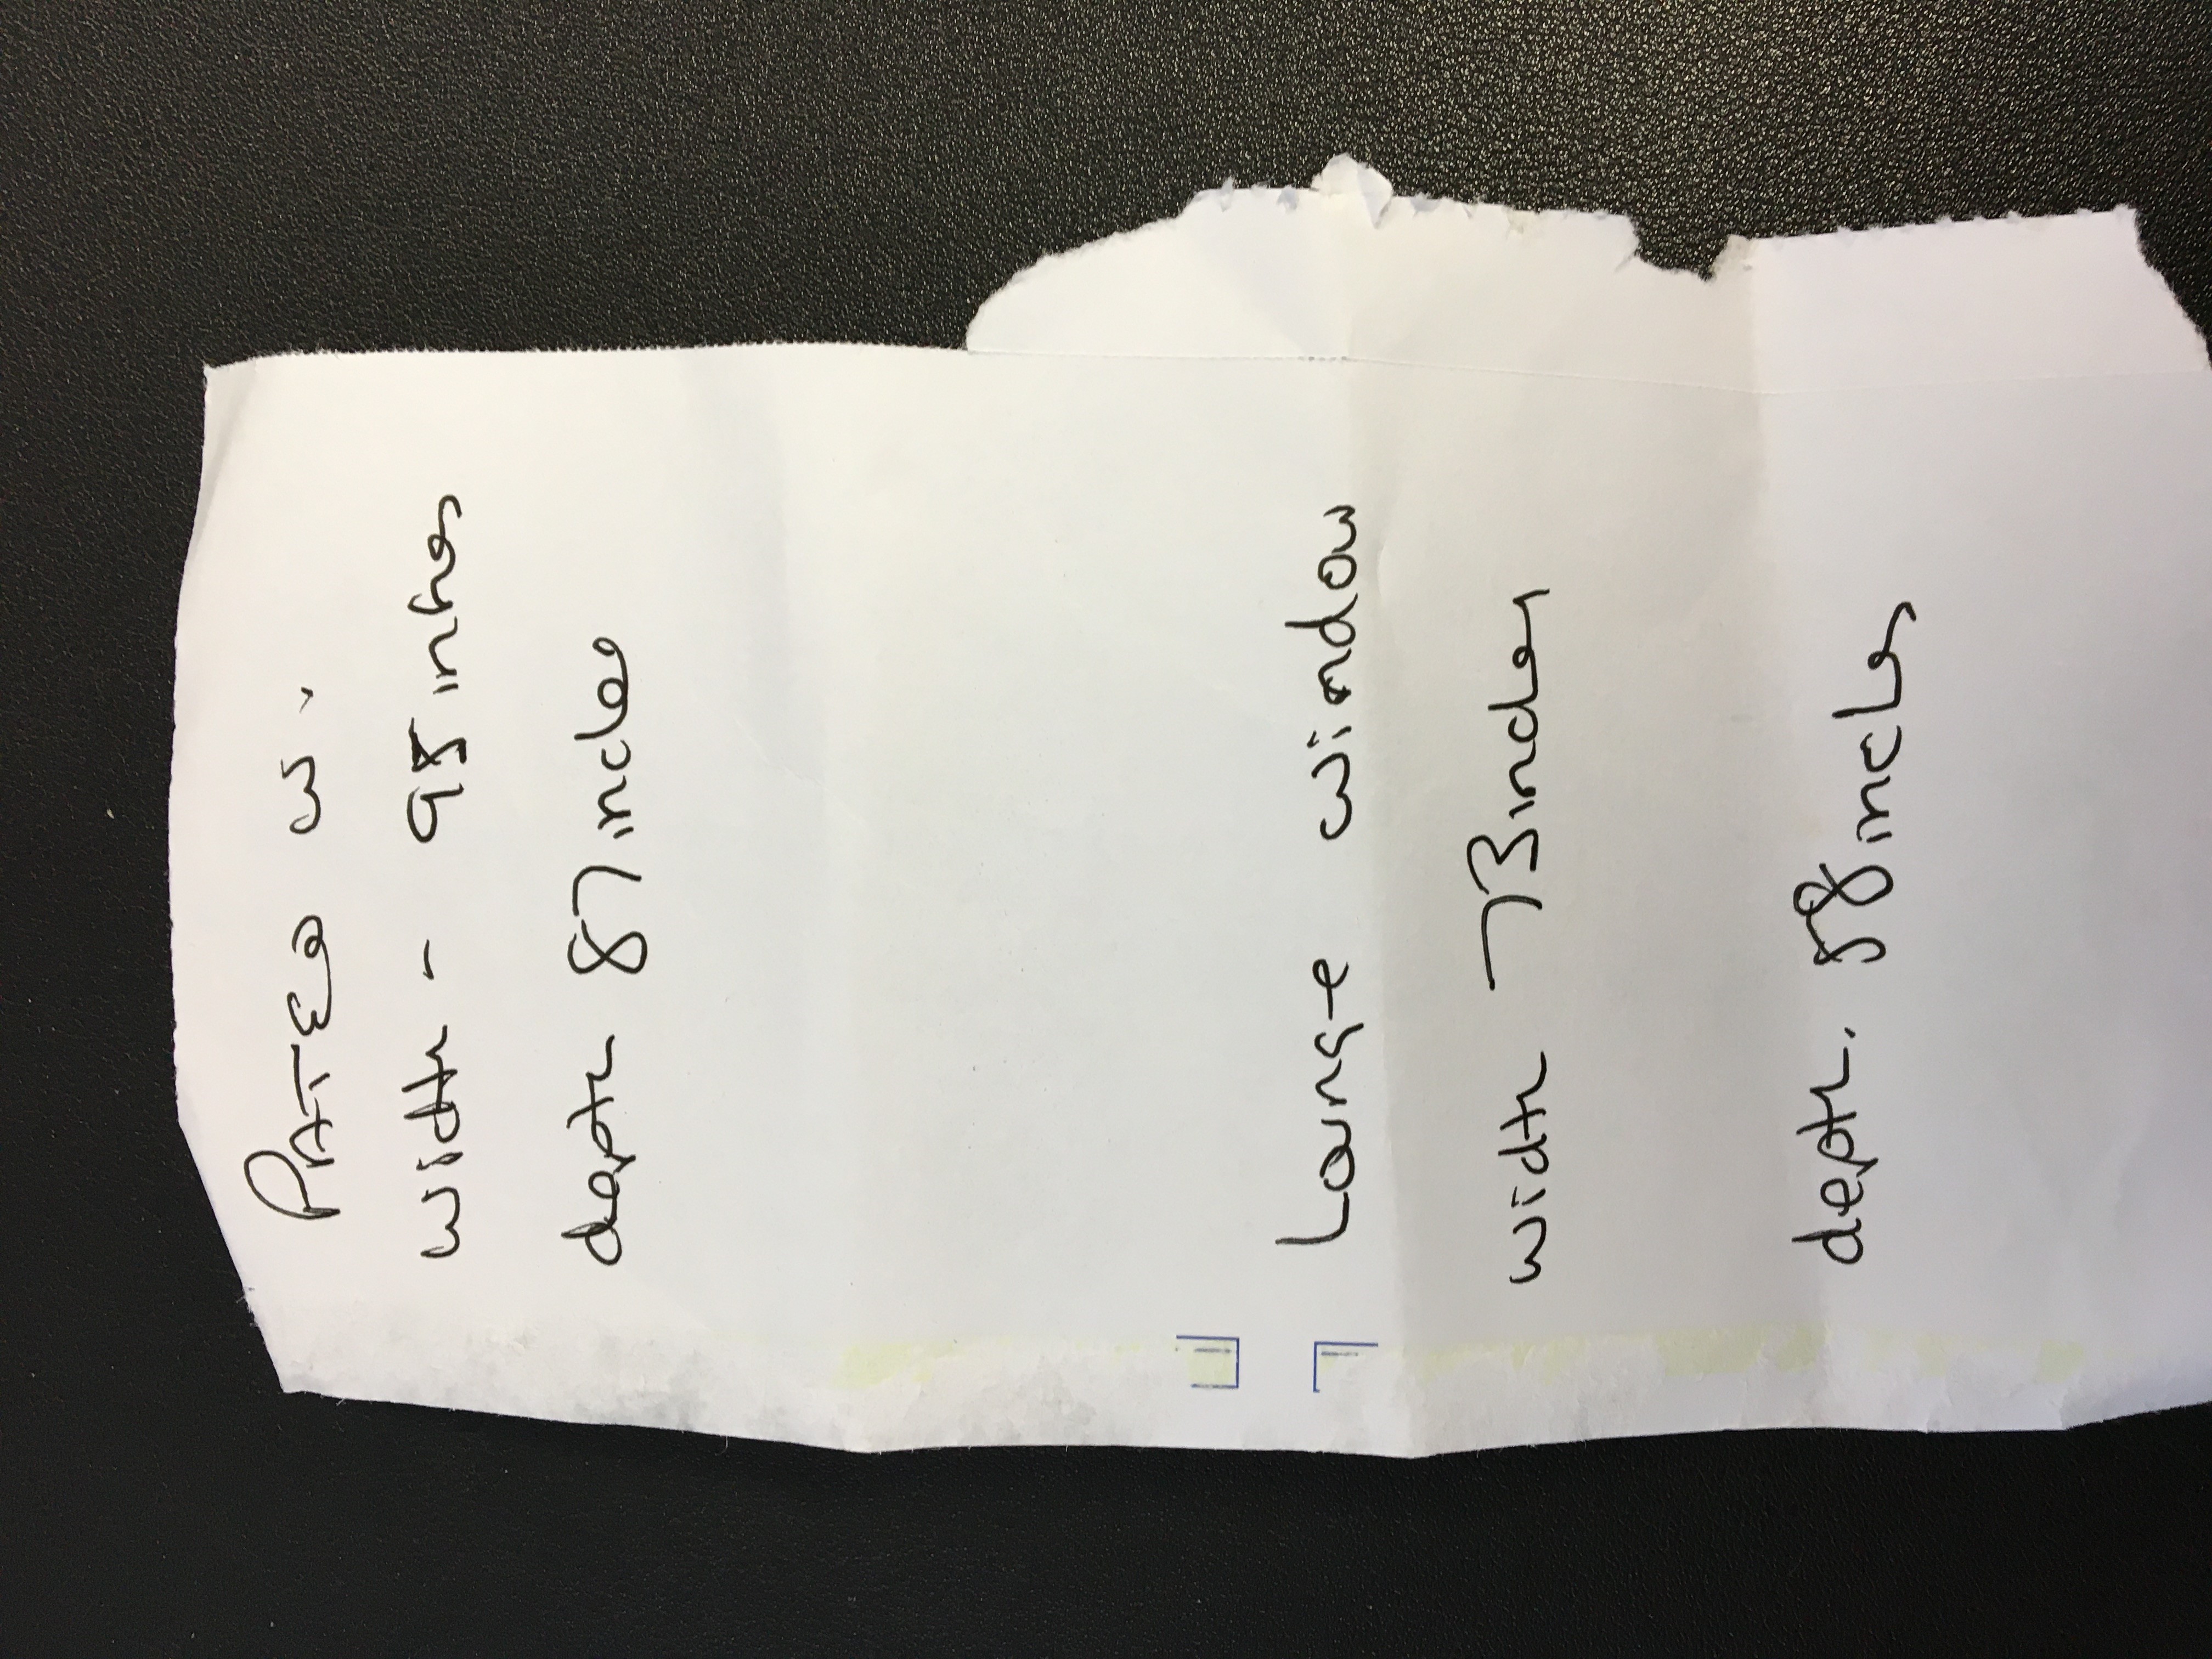 width -
depth 87 inches
Lounge window
width 73 inches
depth. 58 inches